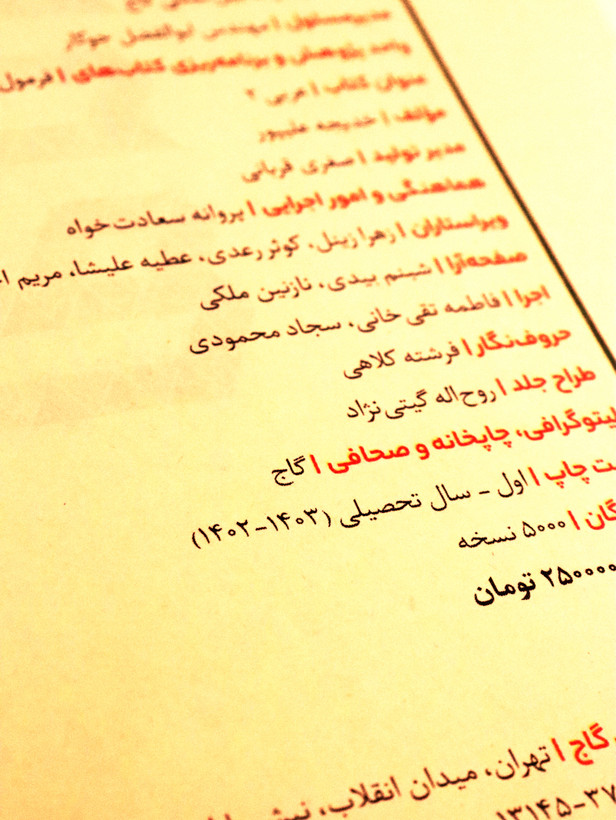 مدیرمسئول | مهندس ابوالفضل جوکار
واحد پژوهش و برنامه‌ریزی کتاب‌های | فرمول
عنوان کتاب | عربی ۲
مؤلف | خدیجه علیپور
مدیر تولید | صغری قربانی
هماهنگی و امور اجرایی | پروانه سعادت‌خواه
ویراستاران | زهرا زینل، کوثر رعدی، عطیه علیشا، مریم
صفحه‌آرا | شبنم بیدی، نازنین ملکی
اجرا | فاطمه تقی خانی، سجاد محمودی
حروف‌نگار | فرشته کلاهی
طراح جلد | روح‌اله گیتی‌نژاد
لیتوگرافی، چاپخانه و صحافی | گاج
ت چاپ | اول - سال تحصیلی (۱۴۰۳-۱۴۰۲)
گان | ۵۰۰۰ نسخه
۲۵۰۰۰۰ تومان
گاج | تهران، میدان انقلاب،
۱۳۱۴۵-۳۷